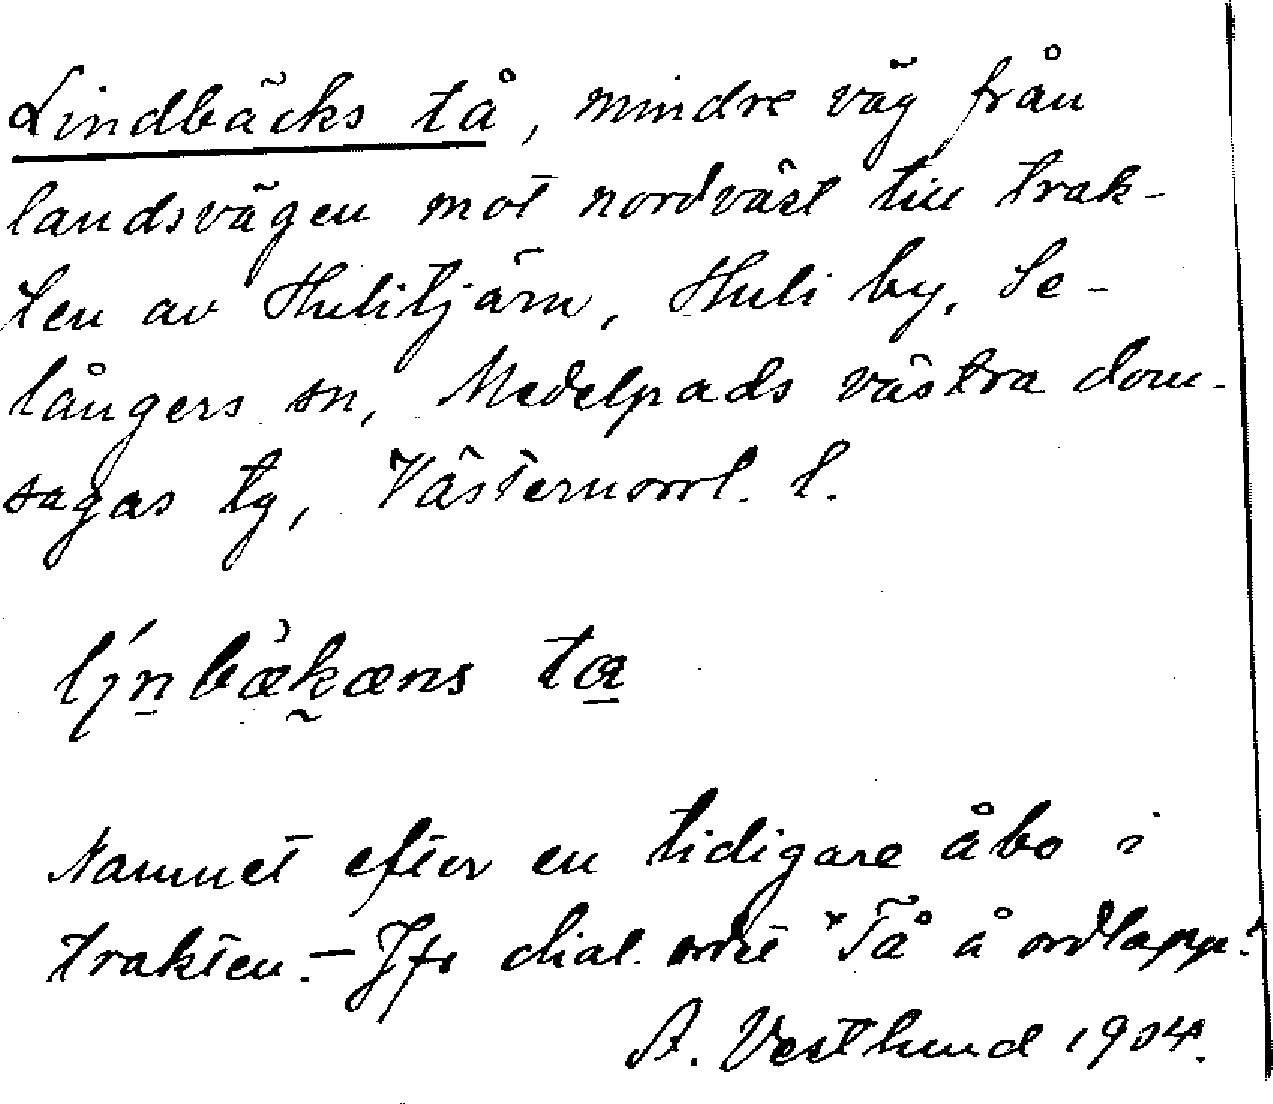 Lindbäcks tå, mindre väg från
landsvägen mot nordväst till trak-
ten av Hulitjärn, Huli by, Se-
långers sn, Medelpads västra dom-
sagas tg, Västernorrl. l.
ta
Namnet efter en tidigare åbo i
trakten. – Jfr dial. ordet Tå å ordlapp.
A. Vestlund 1904.